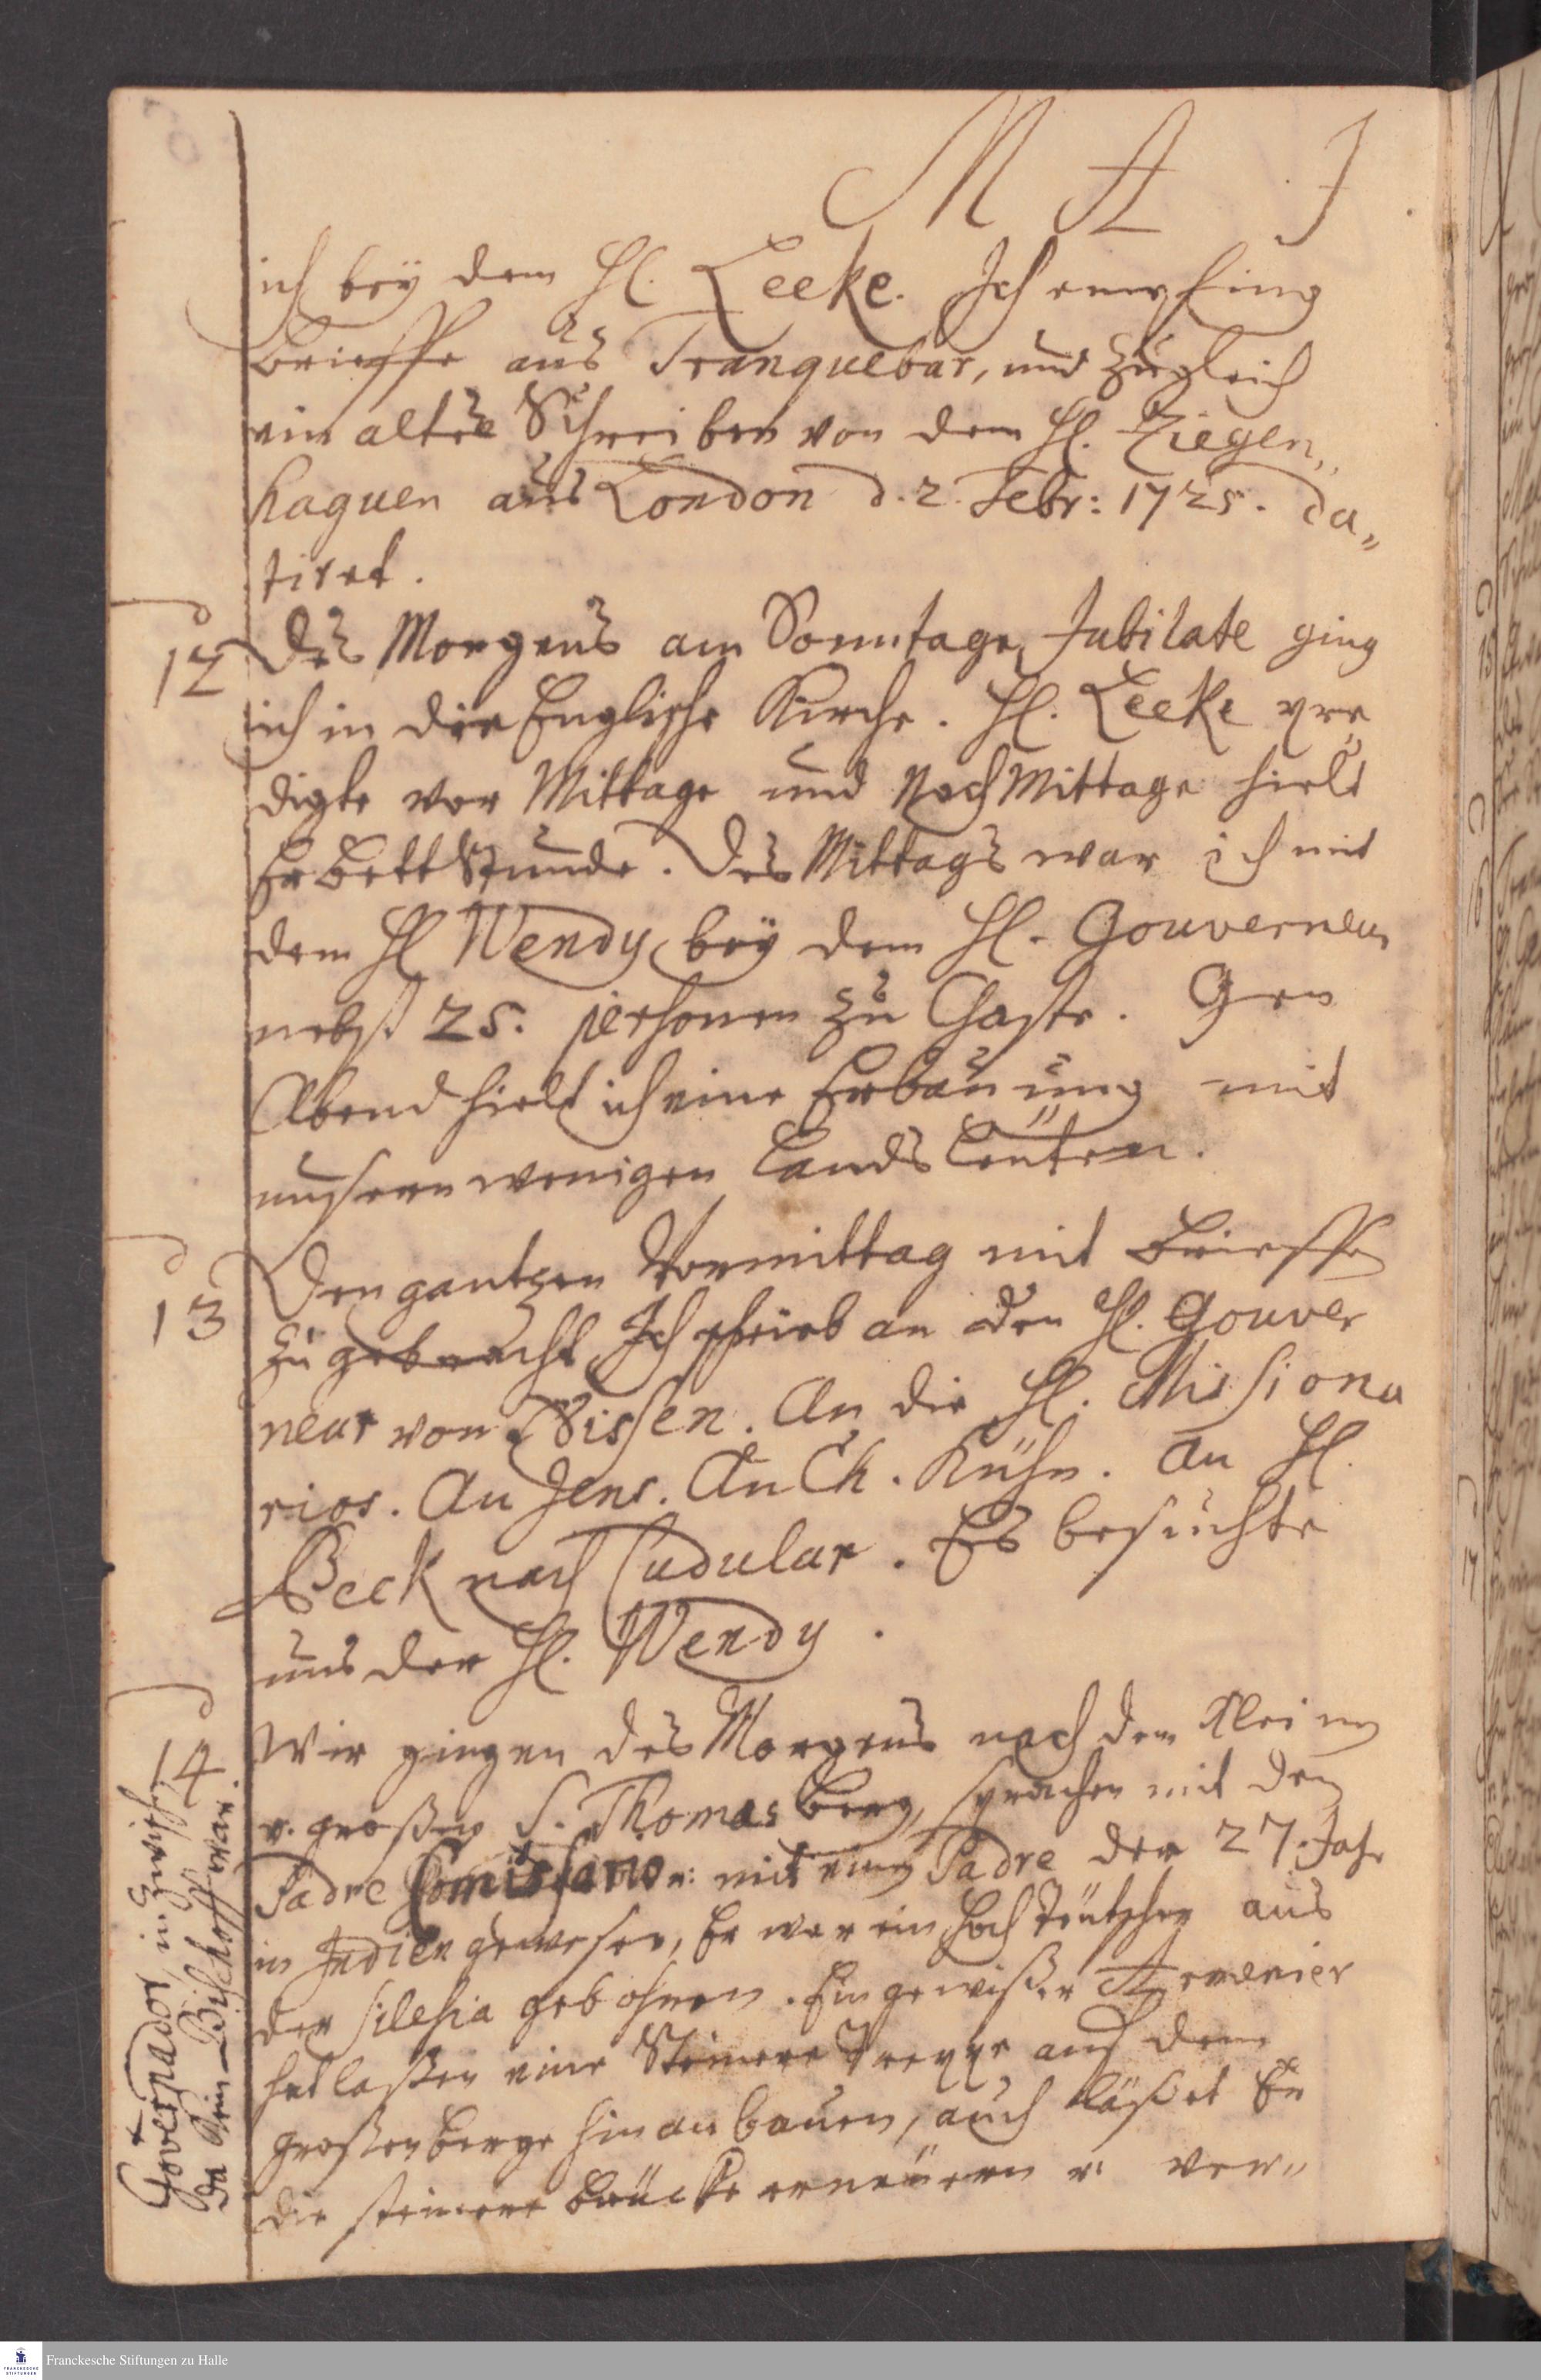 M A J
ich bey dem H. Leeke. Ich empfing
brieffe aus Tranquebar, und zugleich
ein altes Schreiben von dem H. Ziegen„
haguen aus London d. 2. Febr: 1725. da„
tiret.
12 Des Morgens am Sonntage Jubilate ging
ich in die Englische Kirche. H. Leeke pre„
digte vor Mittage und Nach Mittage hielt
Er Bett Stunde. Des Mittags war ich mit
dem H Wendy bey dem H. Gouverneur
nebst 25. personen zu Gaste. Gen
Abend hielt ich eine Erbauung mit
unseren wenigen Lands Leuten.
13 Den gantzen Vormittag mit Brieffe
zu gebracht. Ich schrieb an den H. Gouver
neur von Nissen. An die H. Missiona
rios. An Jens. An Ch. Kuhn. An H.
Beck nach Cudulur. Es besuchte
uns der H. Wendy.
14 Wir gingen des Morgens nach dem Kleinen
u. großen S. Thomas Berg, sprachen mit dem
Padre Comissario u: mit einem Padre der 27. Jahr
in Indien gewesen, Er war ein Hoch Teutscher aus
der Silesia gebohren. Ein gewißer Armenier
hat laßen eine Steinere Treppe auf dem
großen Berge hinan bauen, auch läßet Er
die steinere Brücke erneuern u: ver„
† Governador, in zwisch:
da kein Bischoff war.
Franckesche Stiftungen zu Halle